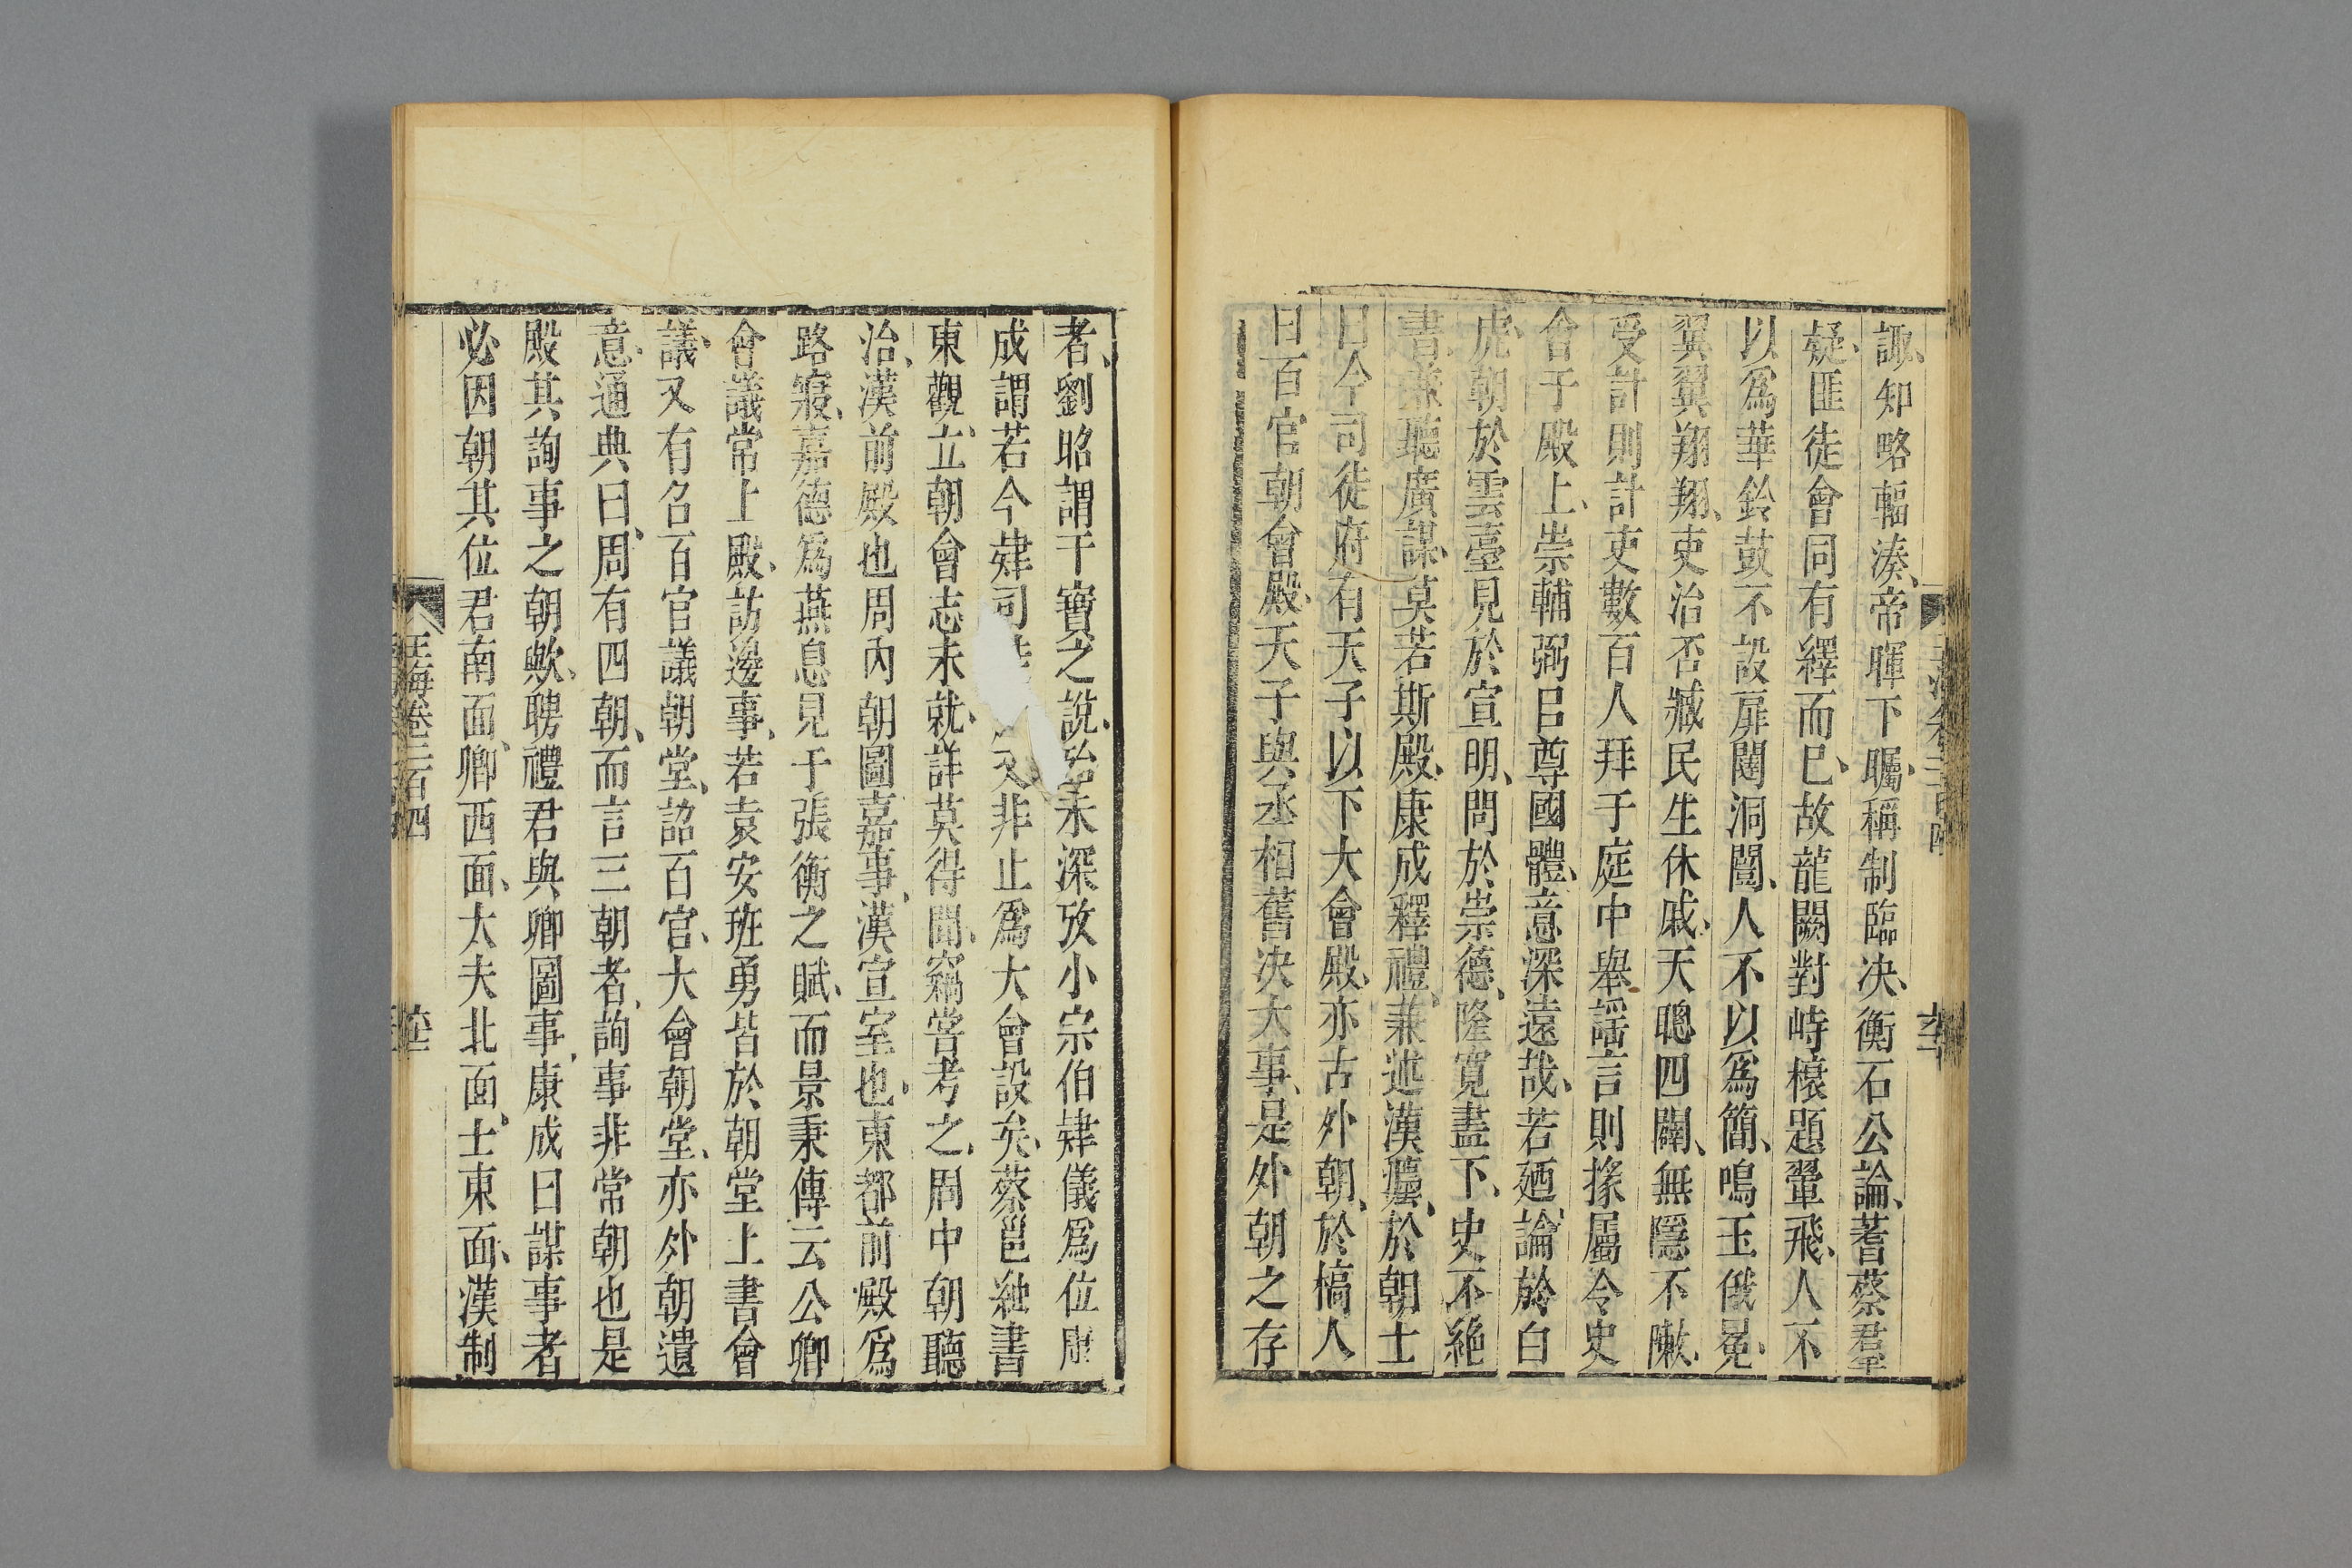 諏知略輻湊帝暉下矚稱制臨决衡石公論蓍蔡君羣
疑匪徒會同有繹而巳故龍闕對峙榱題翬飛人不
以爲華鈴鼓不設扉闥洞闓人不以爲簡鳴玉俄冕
翼翼翔翔吏治否臧民生休戚天聰四闢無隱不㪣
受計則計吏數百人拜于庭中舉謡言則掾屬令史
會于殿上崇輔弼㠯尊國體意深遠哉若廼論於白
虎朝於雲臺見於宣明問於崇德隆寛盡下史不絶
書兼聽廣謀莫若斯殿康成釋禮兼述漢䕻於朝士
曰今司徒府有天子以下大會殿亦古外朝於槁人
曰百官朝會殿天子與丞相舊决大事是外朝之存
者劉昭謂干寶之說未深攷小宗伯肄儀爲位康
成謂若今肄司又非止爲大會設矣蔡邕紬書
東觀立朝會志未就詳莫得聞竊甞考之周中朝聽
治漢前殿也周內朝圖嘉事漢宣室也東都前殿爲
路寢嘉德爲燕息見于張衡之賦而景秉傳云公卿
會議常上殿訪邊事若袁安班勇皆於朝堂上書會
議又有名百官議朝堂詔百官大會朝堂亦外朝遺
意通典曰周有四朝而言三朝者詢事非常朝也是
殿其詢事之朝歟聘禮君與卿圖事康成曰謀事者
必因朝其位君南面卿西面大夫北面士東面漢制
玉海卷二百四